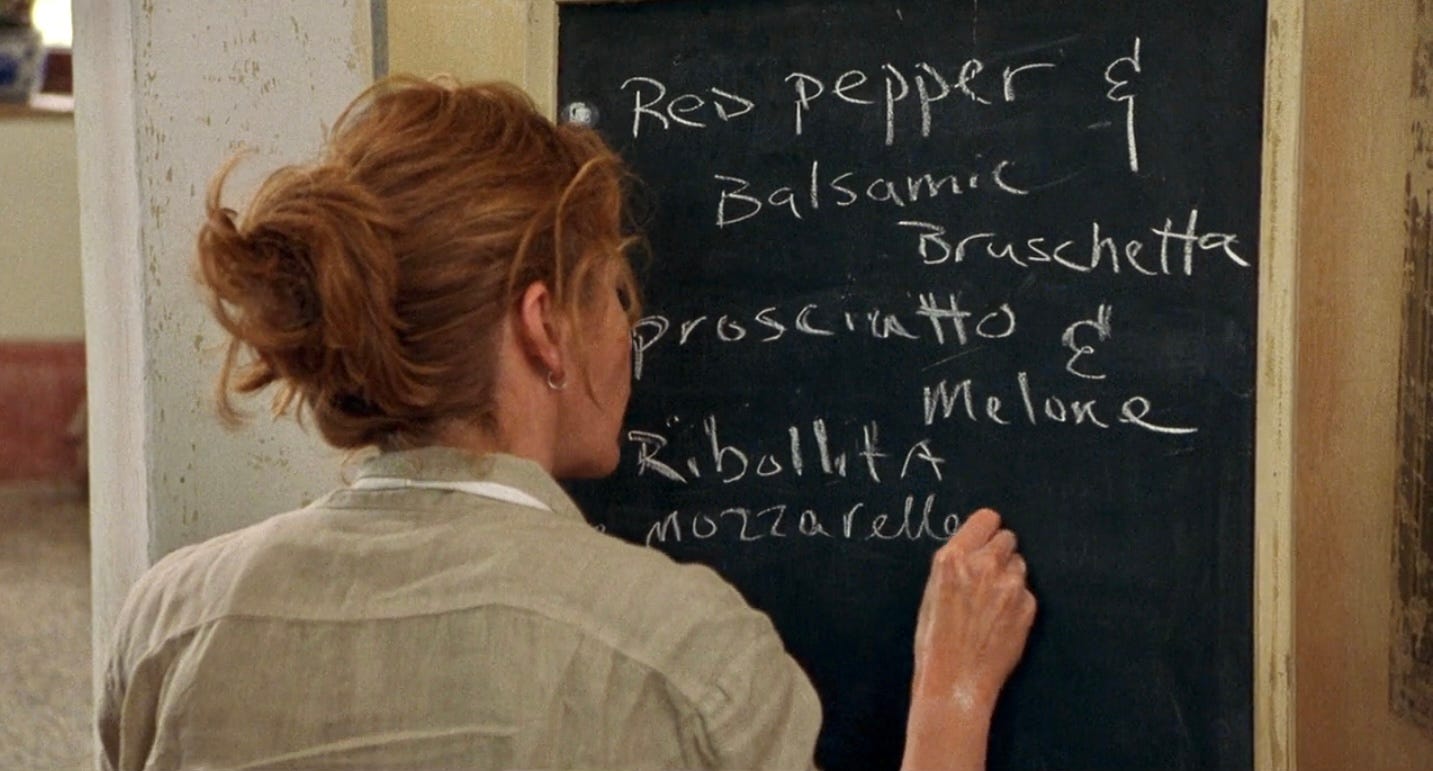 Red pepper &
Balsamic
Bruschetta
prosciutto &
Melone
RibollitA
mozzarella